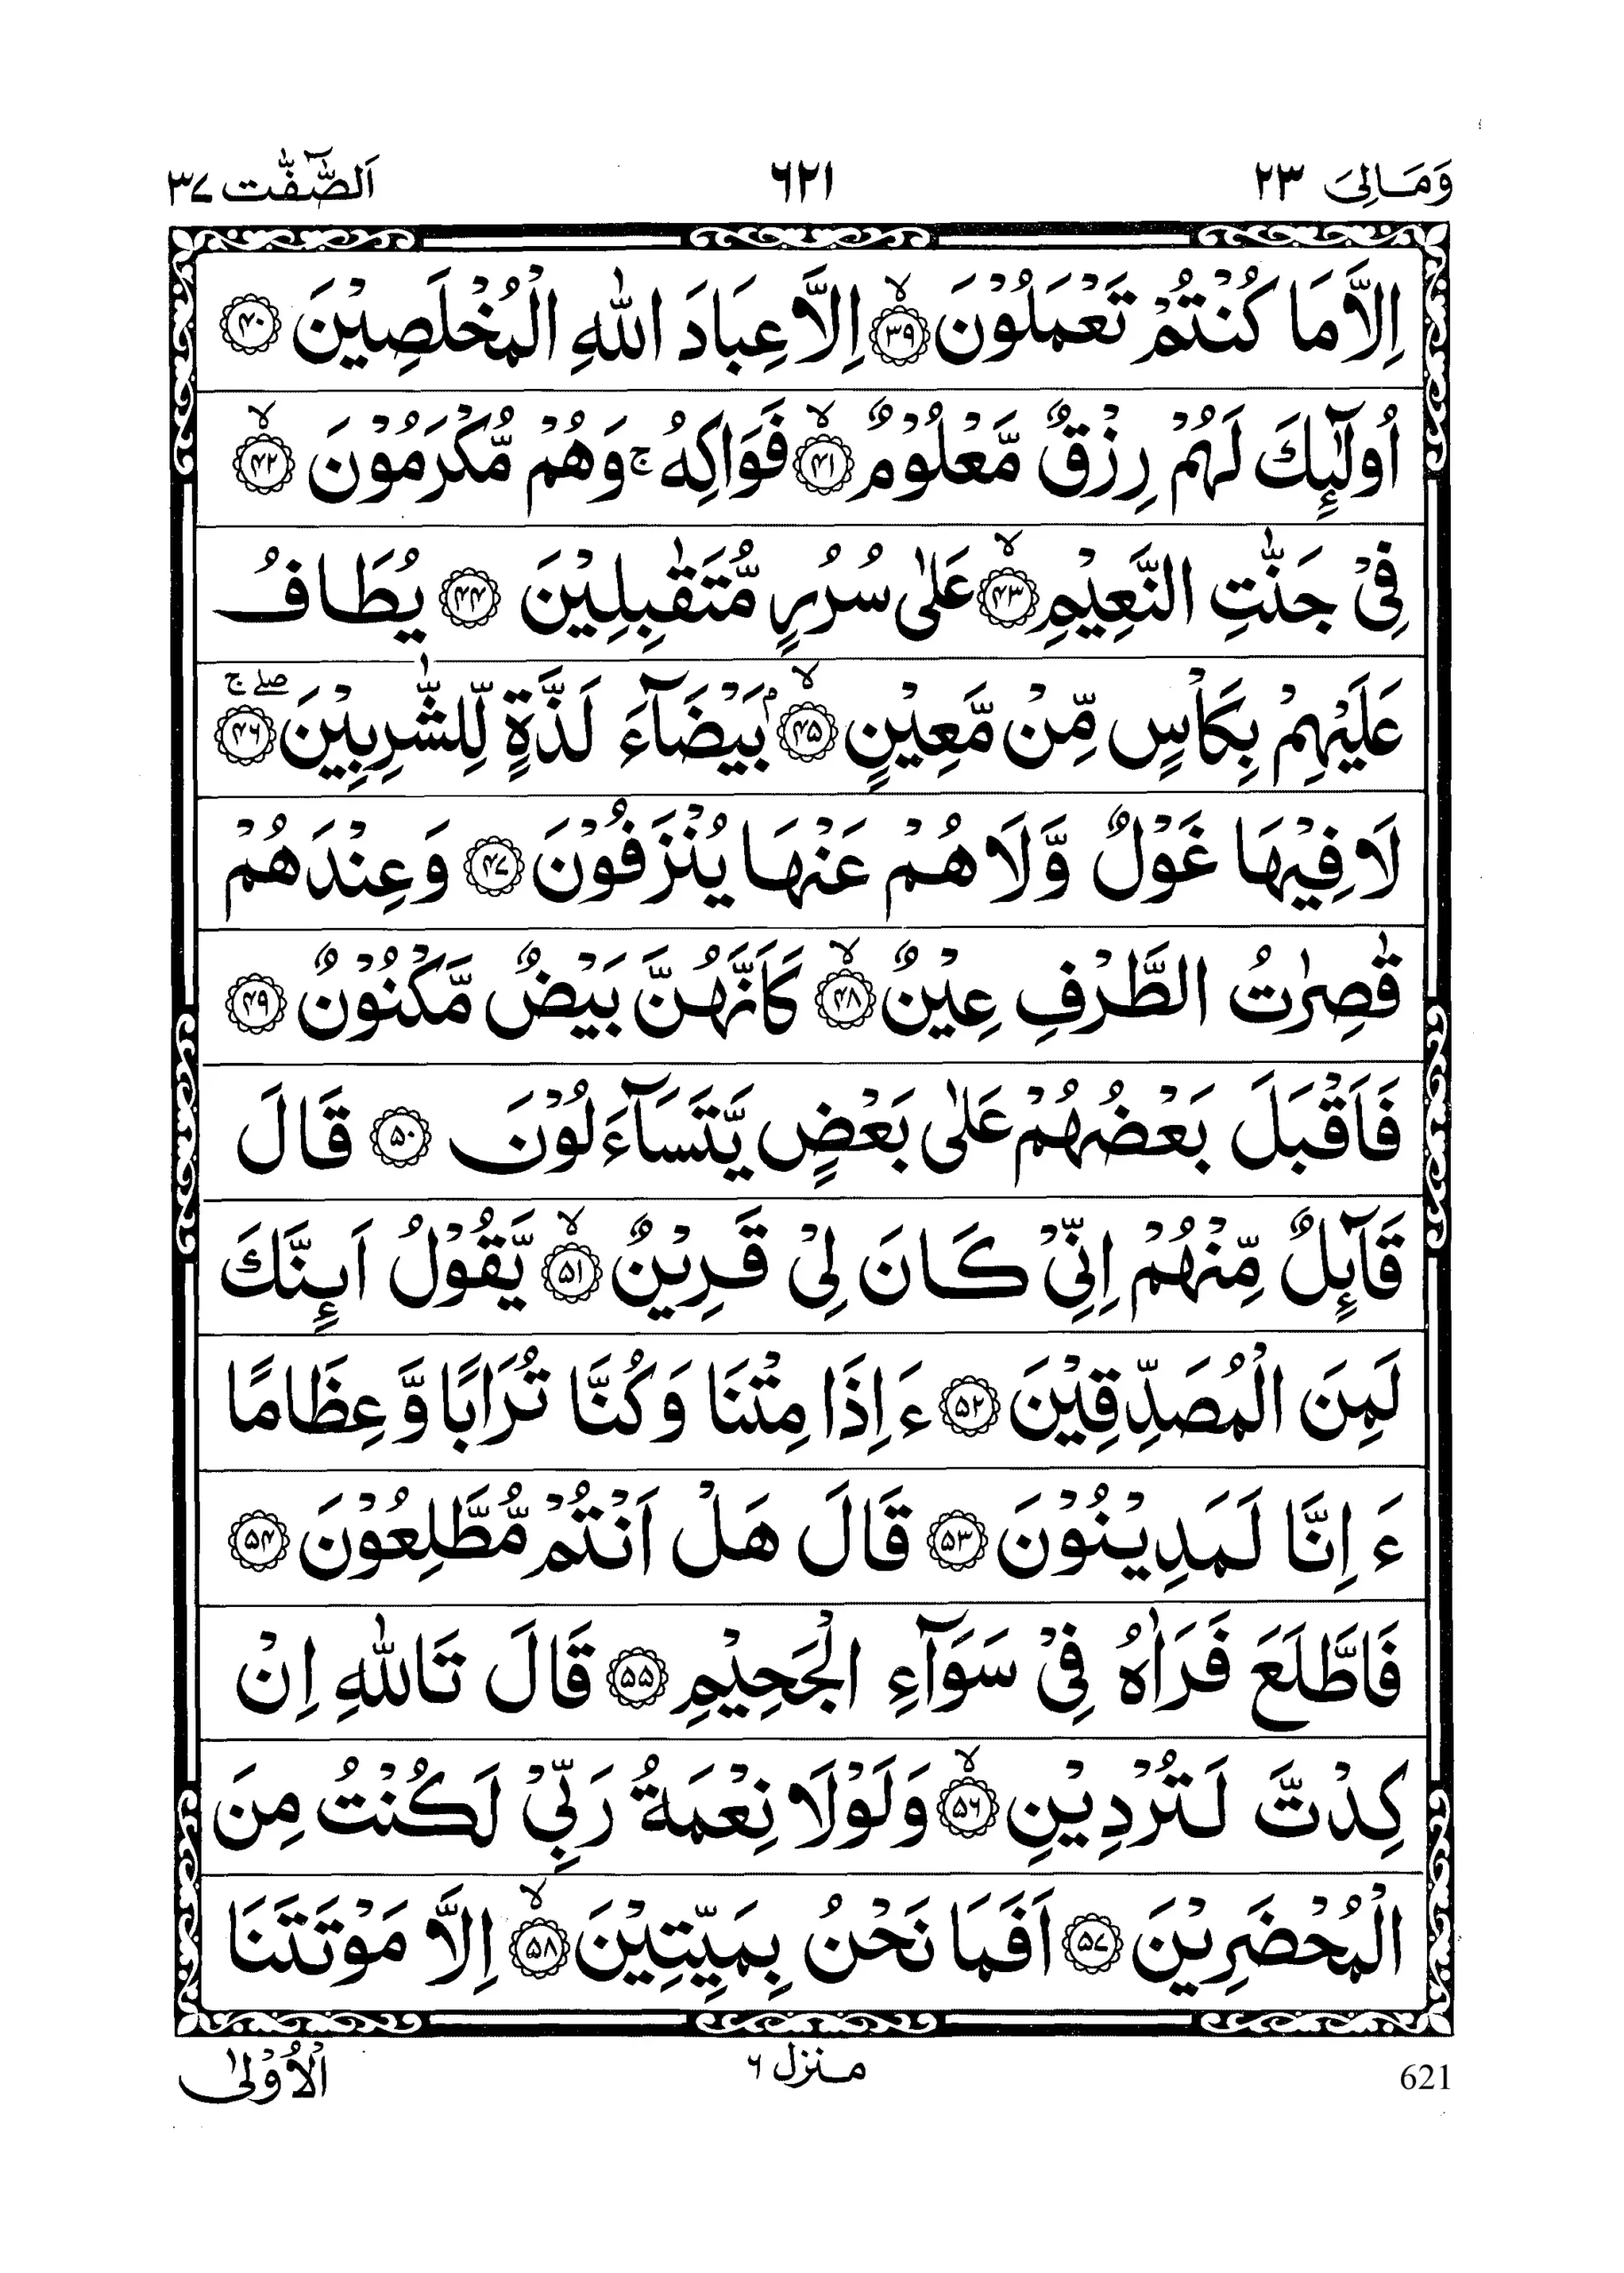 وَمَالِیَ ۲۳ ۶۲۱ اَلصّٰٓفّٰت ۳۷
اِلَّا مَا كُنْتُمْ تَعْمَلُوْنَ ۙ﴿۳۹﴾ اِلَّا عِبَادَ اللّٰهِ الْمُخْلَصِيْنَ ﴿۴۰﴾
اُولٰٓئِكَ لَهُمْ رِزْقٌ مَّعْلُوْمٌ ۙ﴿۴۱﴾ فَوَاكِهُ ۚ وَهُمْ مُّكْرَمُوْنَ ۙ﴿۴۲﴾
فِيْ جَنّٰتِ النَّعِيْمِ ۙ﴿۴۳﴾ عَلٰى سُرُرٍ مُّتَقٰبِلِيْنَ ﴿۴۴﴾ يُطَافُ
عَلَيْهِمْ بِكَاْسٍ مِّنْ مَّعِيْنٍ ۙ﴿۴۵﴾ بَيْضَآءَ لَذَّةٍ لِّلشّٰرِبِيْنَ ۖۚ﴿۴۶﴾
لَا فِيْهَا غَوْلٌ وَّلَا هُمْ عَنْهَا يُنْزَفُوْنَ ﴿۴۷﴾ وَعِنْدَهُمْ
قٰصِرٰتُ الطَّرْفِ عِيْنٌ ۙ﴿۴۸﴾ كَاَنَّهُنَّ بَيْضٌ مَّكْنُوْنٌ ﴿۴۹﴾
فَاَقْبَلَ بَعْضُهُمْ عَلٰى بَعْضٍ يَّتَسَآءَلُوْنَ ﴿۵۰﴾ قَالَ
قَآئِلٌ مِّنْهُمْ اِنِّيْ كَانَ لِيْ قَرِيْنٌ ۙ﴿۵۱﴾ يَّقُوْلُ اَئِنَّكَ
لَمِنَ الْمُصَدِّقِيْنَ ﴿۵۲﴾ ءَاِذَا مِتْنَا وَكُنَّا تُرَابًا وَّعِظَامًا
ءَاِنَّا لَمَدِيْنُوْنَ ﴿۵۳﴾ قَالَ هَلْ اَنْتُمْ مُّطَّلِعُوْنَ ﴿۵۴﴾
فَاطَّلَعَ فَرَاٰهُ فِيْ سَوَآءِ الْجَحِيْمِ ﴿۵۵﴾ قَالَ تَاللّٰهِ اِنْ
كِدْتَّ لَتُرْدِيْنِ ۙ﴿۵۶﴾ وَلَوْلَا نِعْمَةُ رَبِّيْ لَكُنْتُ مِنَ
الْمُحْضَرِيْنَ ﴿۵۷﴾ اَفَمَا نَحْنُ بِمَيِّتِيْنَ ۙ﴿۵۸﴾ اِلَّا مَوْتَتَنَا
621 منزل ۶ الْاُوْلٰى